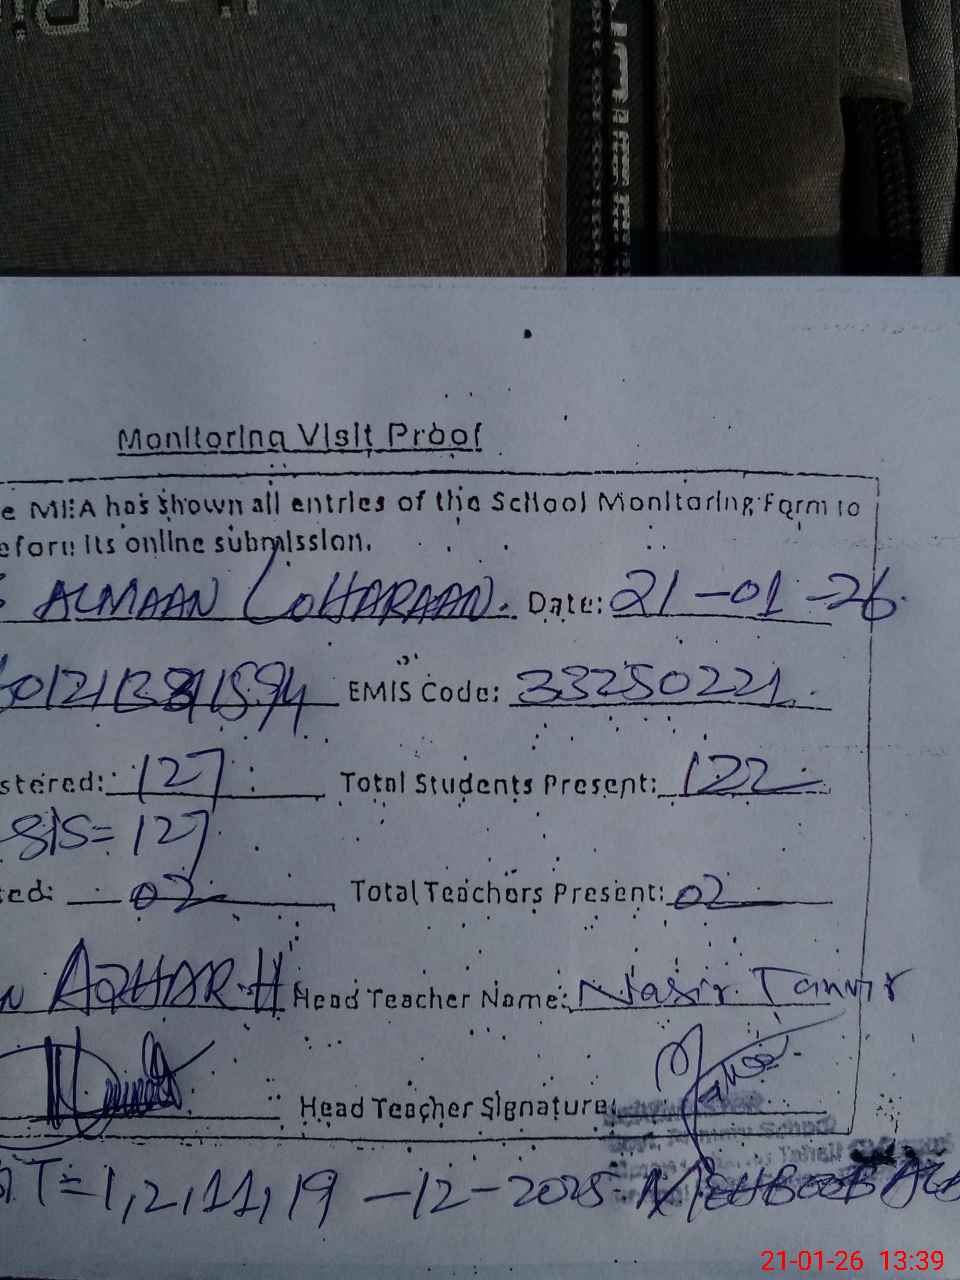 Monitoring Visit Proof
e MEA has shown all entries of the School Monitoring Form to
efore its online submission.
ALMAAN LOHARAAN. Date: 21-01-26.
EMIS Code: 33250221.
stered: 127 Total Students Present: 122
SIS = 127
ed: 02 Total Teachers Present: 02
AZHAR.H Head Teacher Name: Nasir Tanvir
Head Teacher Signature:
T = 1,2,11,19 -12-2025
21-01-26 13:39